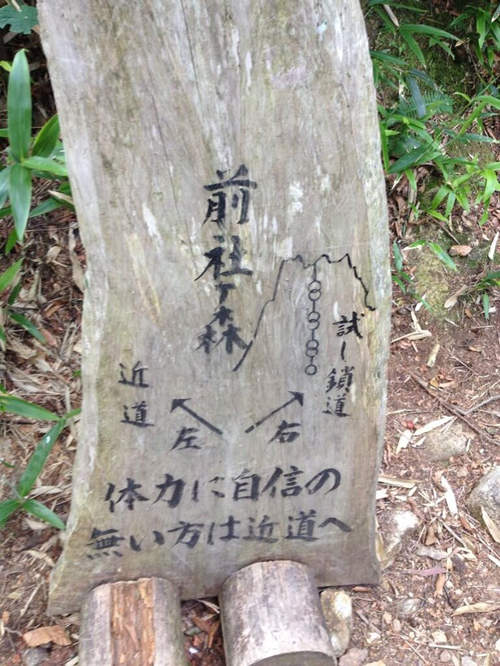 前社ヶ森
試し鎖道
近道
左
右
体力に自信の
無い方は近道へ